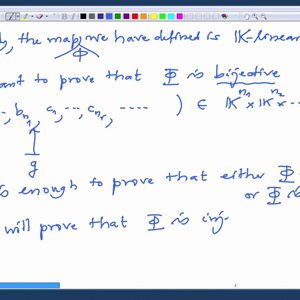 the map we have defined is IK-linear
Φ
to prove that Φ is bijective
, b_{n_1}, c_1, ..., c_{n_r}, .... ) ∈ IK^{n_1} × IK^{n_2} × ...
g
is enough to prove that either Φ
or Φ is
will prove that Φ is inj-